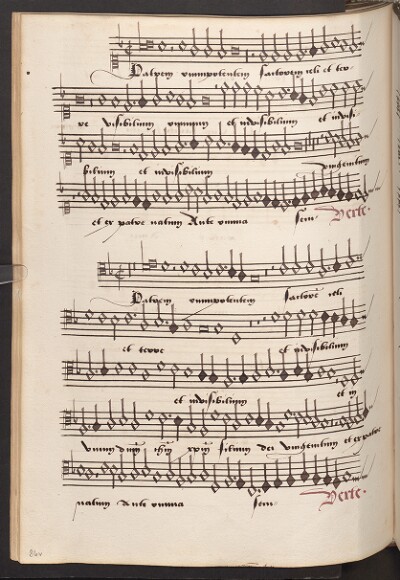 Patrem omnipotentem factorem celi et ter-
re visibilium omnium et invisibilium et invisi-
bilium et invisibilium unigenitum
et ex patre natum Ante omnia secu- Verte.
Patrem omnipotentem factorē celi
et terre et invisibilium
et invisibilium et in
unum dnm ihm xpm filium dei unigenitum et ex patre
natum Ante omnia secu- Verte.